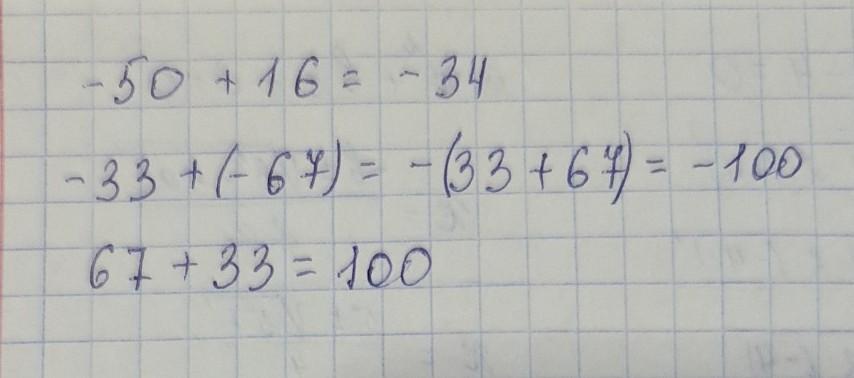 -50 + 16 = -34
-33 + (-67) = -(33 + 67) = -100
67 + 33 = 100